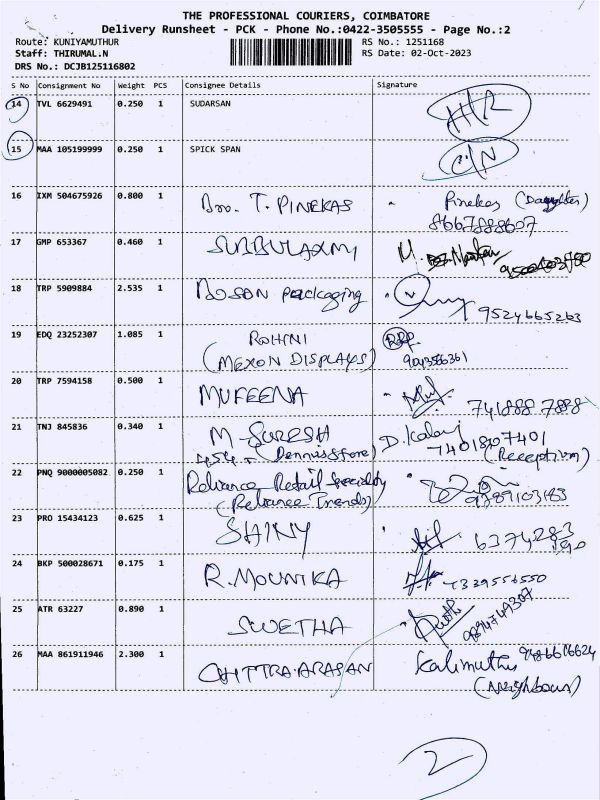 THE PROFESSIONAL COURIERS, COIMBATORE
Delivery Runsheet - PCK - Phone No.:0422-3505555 - Page No.:2
Route: KUNIYAMUTHUR RS No.: 1251168
Staff: THIRUMAL.N RS Date: 02-Oct-2023
DRS No.: DCJB125116802
S No Consignment No Weight PCS Consignee Details Signature
14 TVL 6629491 0.250 1 SUDARSAN
15 MAA 105199999 0.250 1 SPICK SPAN
16 IXM 504675926 0.800 1 T. PINEKAS Pinekas (Daughter)
8667888607
17 GMP 653367 0.460 1 SUBBULAXMI
18 TRP 5909884 2.535 1 BOSON packaging 9524665263
19 EDQ 23252307 1.085 1 ROHINI
(MEXON DISPLAYS)
20 TRP 7594158 0.500 1 MUFEENA 741888 7888
21 TNJ 845836 0.340 1 M-SURESH D. Kalai 7401807401
(Dennis Store) (Reception)
22 PNQ 9000005082 0.250 1 Reliance Retail
(Reliance Trends) 9789103183
23 PRO 15434123 0.625 1 SHINY 6374283
24 BKP 500028671 0.175 1 R. MOUNIKA 7339556550
25 ATR 63227 0.890 1 SWETHA
26 MAA 861911946 2.300 1 CHITTRA.ARASAN Kalimuthu
(Neighbour)
2